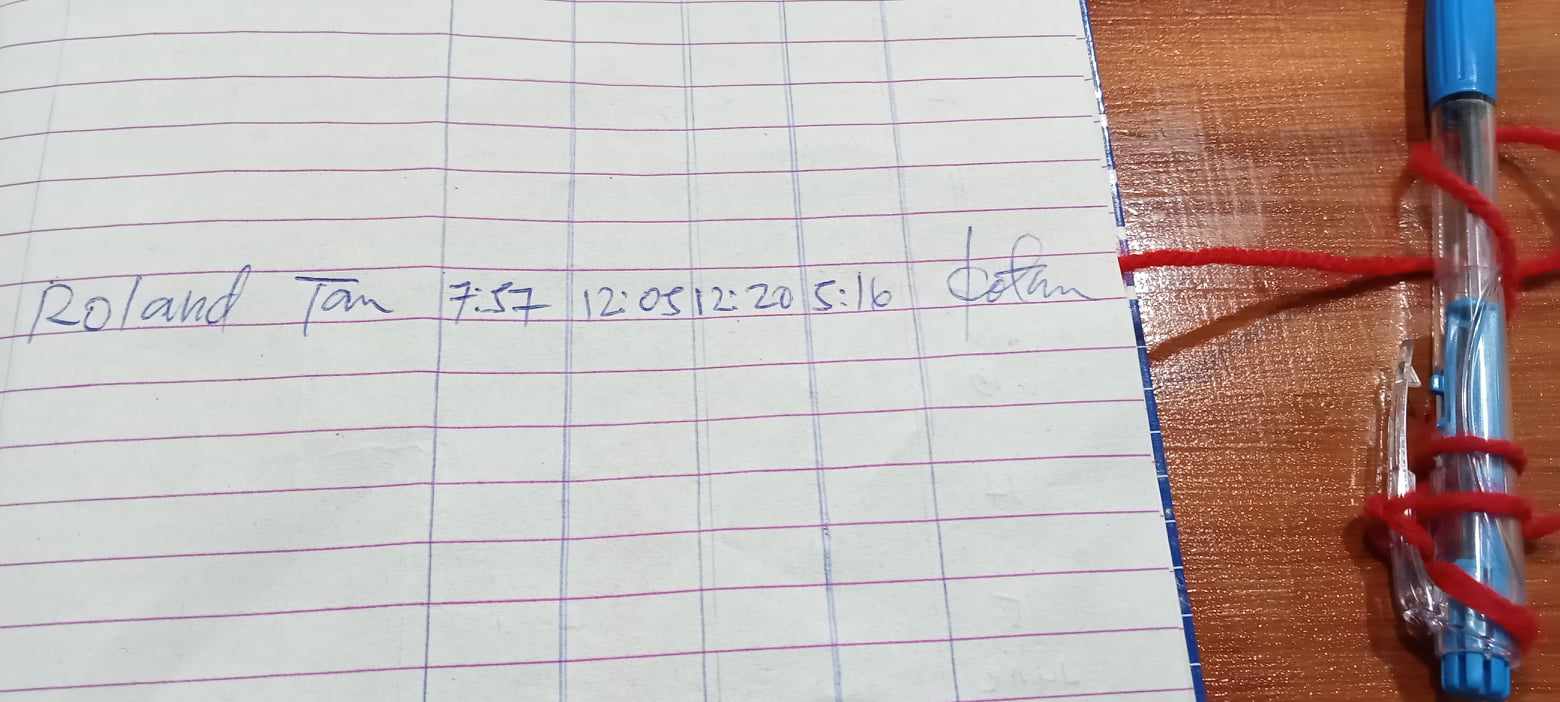 Roland Tan 7:57 12:05 12:20 5:16